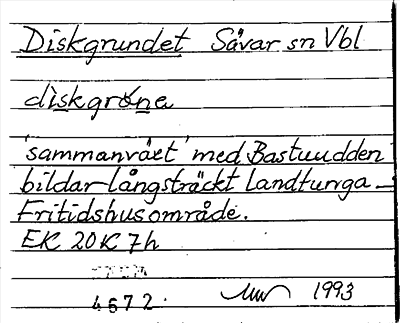 Diskgrundet Sävar sn Vbl
diskgrɷna
'sammanväxt' med Bastuudden
bildar långsträckt landtunga –
Fritidshusområde.
EK 20K 7h
4672.
1993